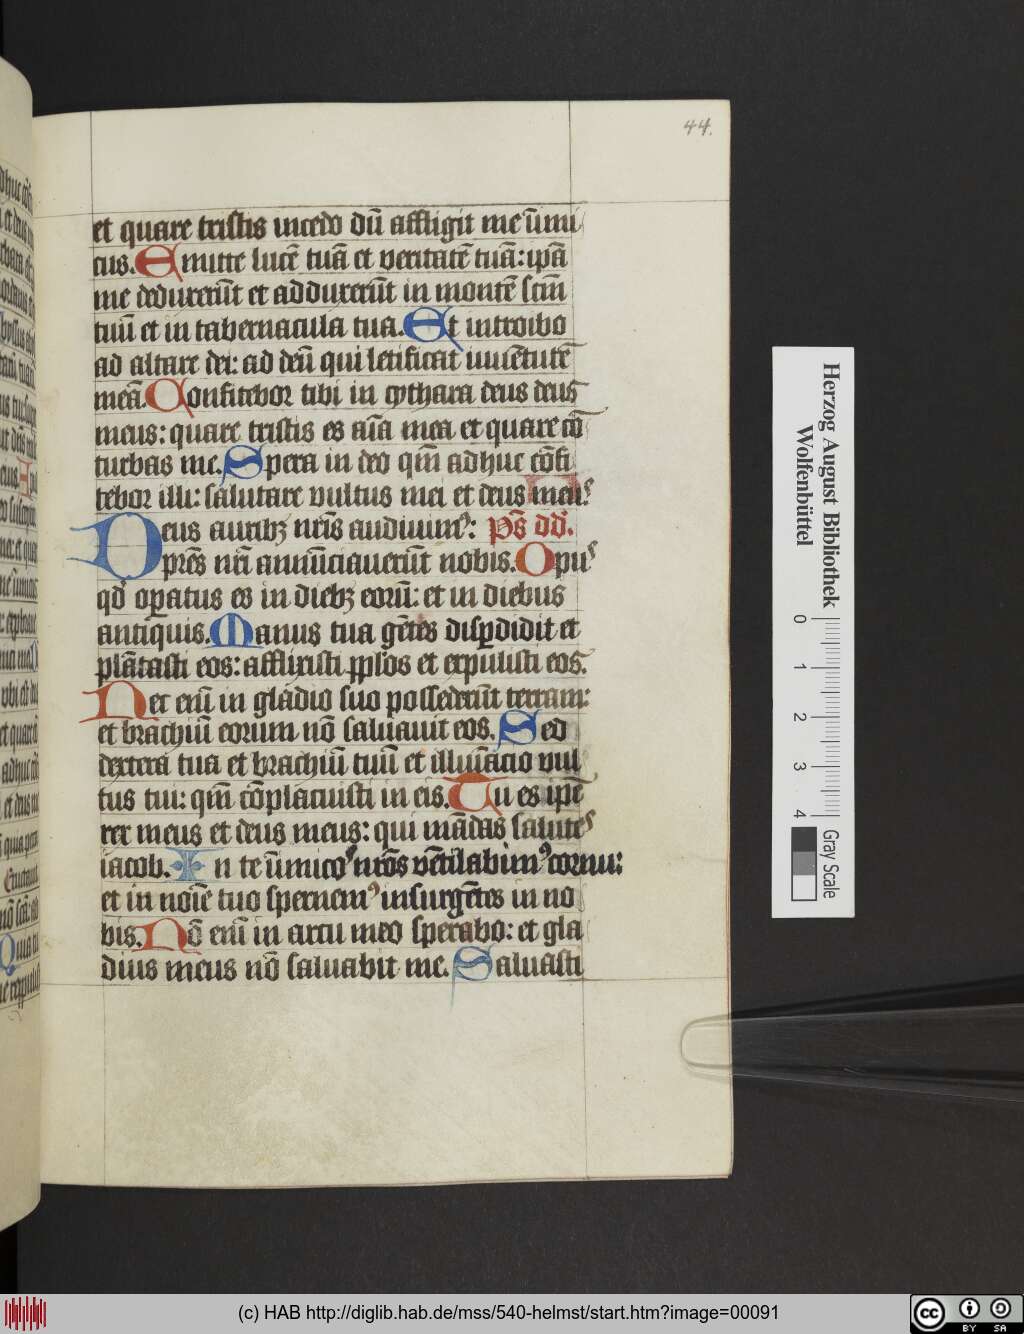 44.
et quare tristis incedo dū affligit me inimi
cus. Emitte lucē tuā et veritatē tuā: ipā
me deduxerūt et adduxerūt in montē sctm̄
tuū et in tabernacula tua. Et introibo
ad altare dei: ad deū qui letificat iuuētutē
meā. Confitebor tibi in cythara deus deus
meus: quare tristis es aīa mea et quare cō
turbas me. Spera in deo qm̄ adhuc cōfi
tebor illi: salutare vultus mei et deus meus
Deus auribꝫ nr̄is audiuimꝰ: ps̄ dd.
prēs nr̄i annūciauerūt nobis. Opus
qd̓ opatus es in diebꝫ eorū: et in diebus
antiquis. Manus tua gētes dispdidit et
plātasti eos: afflixisti pplos et expulisti eos.
Nec enī in gladio suo possederūt terram:
et brachiū eorum nō saluauit eos. Sed
dextera tua et brachiū tuū et illuīacio vul
tus tui: qm̄ cōplacuisti in eis. Tu es ipē
rex meus et deus meus: qui mādas salutes
iacob. In te inimicos nr̄os vētilabimꝰ cornu:
et in noīe tuo spernemꝰ insurgētes in no
bis. Nō enī in arcu meo sperabo: et gla
dius meus nō saluabit me. Saluasti
Herzog August Bibliothek
Wolfenbüttel
0 1 2 3 4
Gray Scale
(c) HAB http://diglib.hab.de/mss/540-helmst/start.htm?image=00091
cc BY SA